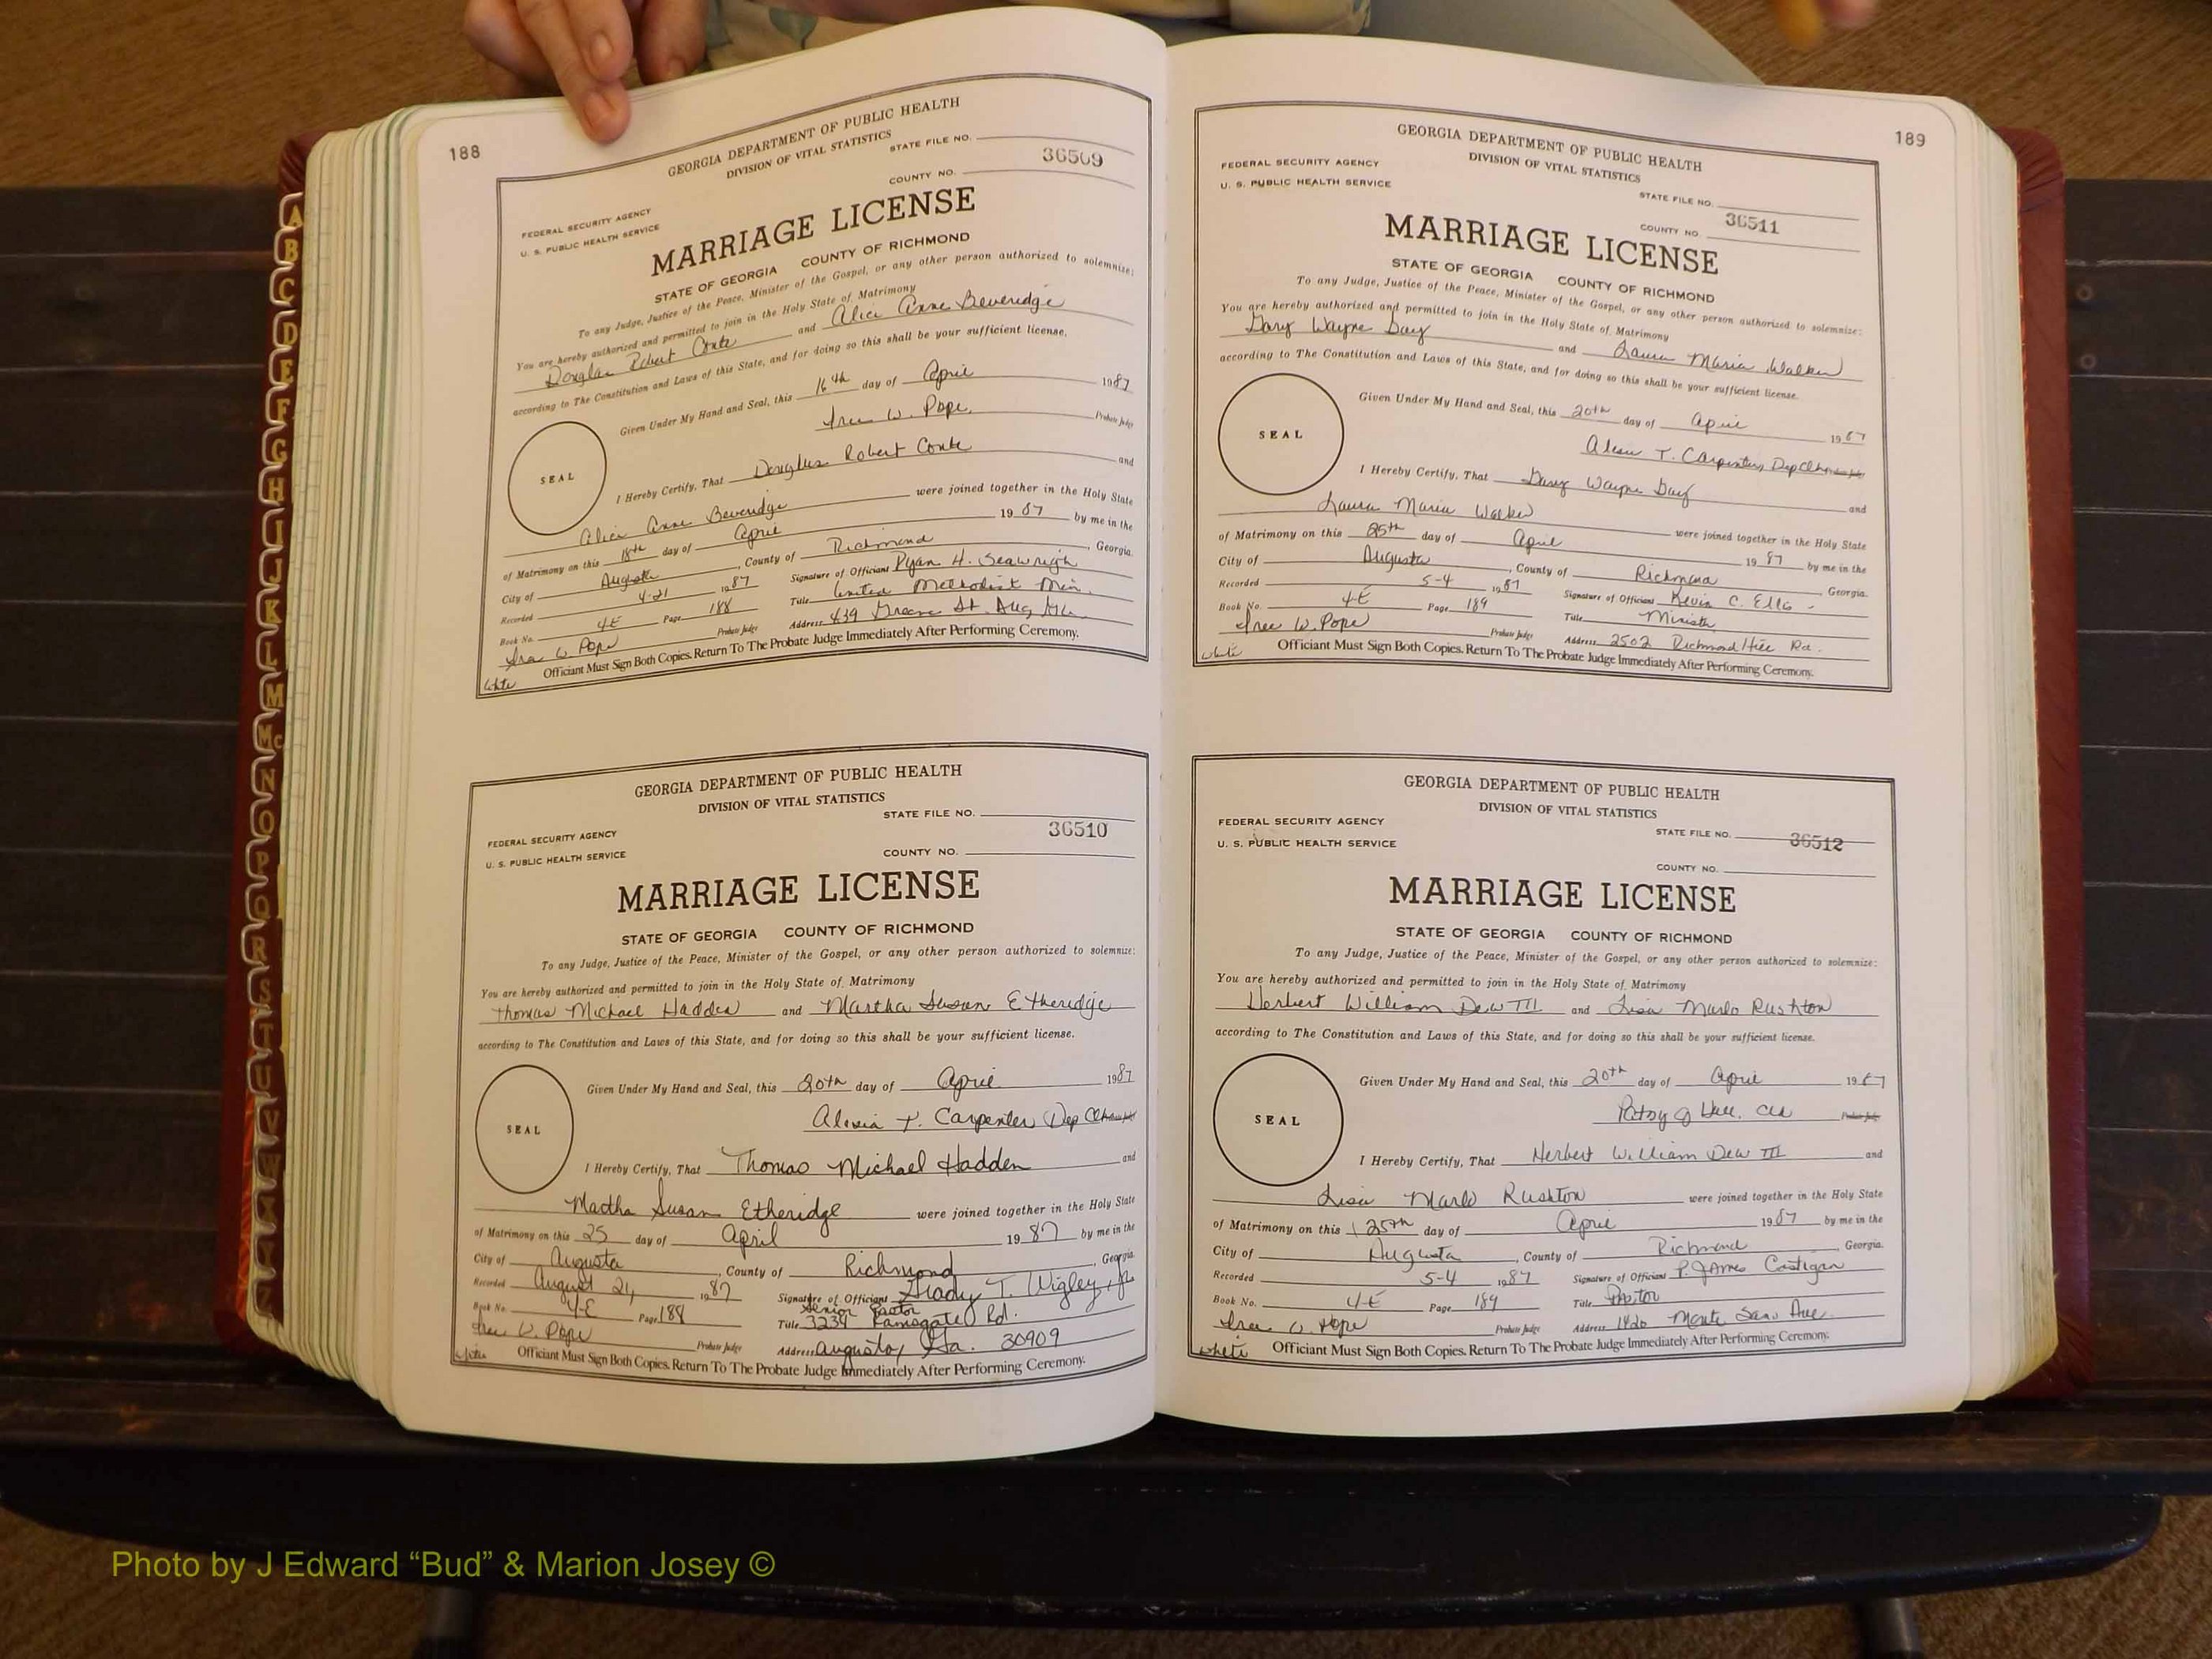 188
GEORGIA DEPARTMENT OF PUBLIC HEALTH
DIVISION OF VITAL STATISTICS
STATE FILE NO.
36509
FEDERAL SECURITY AGENCY
COUNTY NO.
U. S. PUBLIC HEALTH SERVICE
MARRIAGE LICENSE
STATE OF GEORGIA COUNTY OF RICHMOND
To any Judge, Justice of the Peace, Minister of the Gospel, or any other person authorized to solemnize:
You are hereby authorized and permitted to join in the Holy State of Matrimony
Douglas Robert Conte and Alice Anne Beveridge
according to The Constitution and Laws of this State, and for doing so this shall be your sufficient license.
Given Under My Hand and Seal, this 16th day of April 1987
W. Pope Probate Judge
SEAL
I Hereby Certify, That Douglas Robert Conte and
Alice Anne Beveridge were joined together in the Holy State
of Matrimony on this 18th day of April 1987 by me in the
City of Augusta, County of Richmond, Georgia.
Recorded 4-21 1987 Signature of Official Ryan H. Seawright
Book No. 4E Page 188 Title United Methodist Min.
W. Pope Probate Judge Address 439 Greene St. Aug
White Officiant Must Sign Both Copies. Return To The Probate Judge Immediately After Performing Ceremony.
GEORGIA DEPARTMENT OF PUBLIC HEALTH
DIVISION OF VITAL STATISTICS
STATE FILE NO.
36510
FEDERAL SECURITY AGENCY
U. S. PUBLIC HEALTH SERVICE
COUNTY NO.
MARRIAGE LICENSE
STATE OF GEORGIA COUNTY OF RICHMOND
To any Judge, Justice of the Peace, Minister of the Gospel, or any other person authorized to solemnize:
You are hereby authorized and permitted to join in the Holy State of Matrimony
Thomas Michael Hadden and Martha Susan Etheridge
according to The Constitution and Laws of this State, and for doing so this shall be your sufficient license.
Given Under My Hand and Seal, this 20th day of April 1987
T. Carpenter Dep Clk
SEAL
I Hereby Certify, That Thomas Michael Hadden and
Martha Susan Etheridge were joined together in the Holy State
of Matrimony on this 25 day of April 1987 by me in the
City of Augusta, County of Richmond, Georgia.
Recorded August 21, 1987 Signature of Official Grady T. Wigley, Jr.
Senior Pastor
Book No. 4-E Page 188 Title 3239 Ramsgate Rd.
W. Pope Probate Judge Address Augusta, Ga. 30909
White Officiant Must Sign Both Copies. Return To The Probate Judge Immediately After Performing Ceremony.
189
GEORGIA DEPARTMENT OF PUBLIC HEALTH
DIVISION OF VITAL STATISTICS
FEDERAL SECURITY AGENCY
U. S. PUBLIC HEALTH SERVICE
STATE FILE NO.
36511
COUNTY NO.
MARRIAGE LICENSE
STATE OF GEORGIA COUNTY OF RICHMOND
To any Judge, Justice of the Peace, Minister of the Gospel, or any other person authorized to solemnize:
You are hereby authorized and permitted to join in the Holy State of Matrimony
Gary Wayne Day and Laura Maria Walker
according to The Constitution and Laws of this State, and for doing so this shall be your sufficient license.
Given Under My Hand and Seal, this 20th day of April 1987
T. Carpenter, Dep Clk
SEAL
I Hereby Certify, That Gary Wayne Day and
Laura Maria Walker were joined together in the Holy State
of Matrimony on this 25th day of April 1987 by me in the
City of Augusta, County of Richmond, Georgia.
Recorded 5-4 1987 Signature of Official Kevin C. Ellis
Book No. 4E Page 189 Title Minister
W. Pope Probate Judge Address 2502 Richmond Hill Rd.
White Officiant Must Sign Both Copies. Return To The Probate Judge Immediately After Performing Ceremony.
GEORGIA DEPARTMENT OF PUBLIC HEALTH
DIVISION OF VITAL STATISTICS
FEDERAL SECURITY AGENCY
STATE FILE NO. 36512
U. S. PUBLIC HEALTH SERVICE
COUNTY NO.
MARRIAGE LICENSE
STATE OF GEORGIA COUNTY OF RICHMOND
To any Judge, Justice of the Peace, Minister of the Gospel, or any other person authorized to solemnize:
You are hereby authorized and permitted to join in the Holy State of Matrimony
Herbert William Dew III and Lisa Marlo Rushton
according to The Constitution and Laws of this State, and for doing so this shall be your sufficient license.
Given Under My Hand and Seal, this 20th day of April 1987
Patsy J Probate Judge
SEAL
I Hereby Certify, That Herbert William Dew III and
Lisa Marlo Rushton were joined together in the Holy State
of Matrimony on this 25th day of April 1987 by me in the
City of Augusta, County of Richmond, Georgia.
Recorded 5-4 1987 Signature of Official P. James Costigan
Book No. 4E Page 189 Title Pastor
W. Pope Probate Judge Address 1420 Monte Sano Ave.
White Officiant Must Sign Both Copies. Return To The Probate Judge Immediately After Performing Ceremony.
A
B
C
D
E
F
G
H
I
J
K
L
M
Mc
N
O
P
Q
R
S
T
U
V
W
Photo by J Edward “Bud” & Marion Josey ©